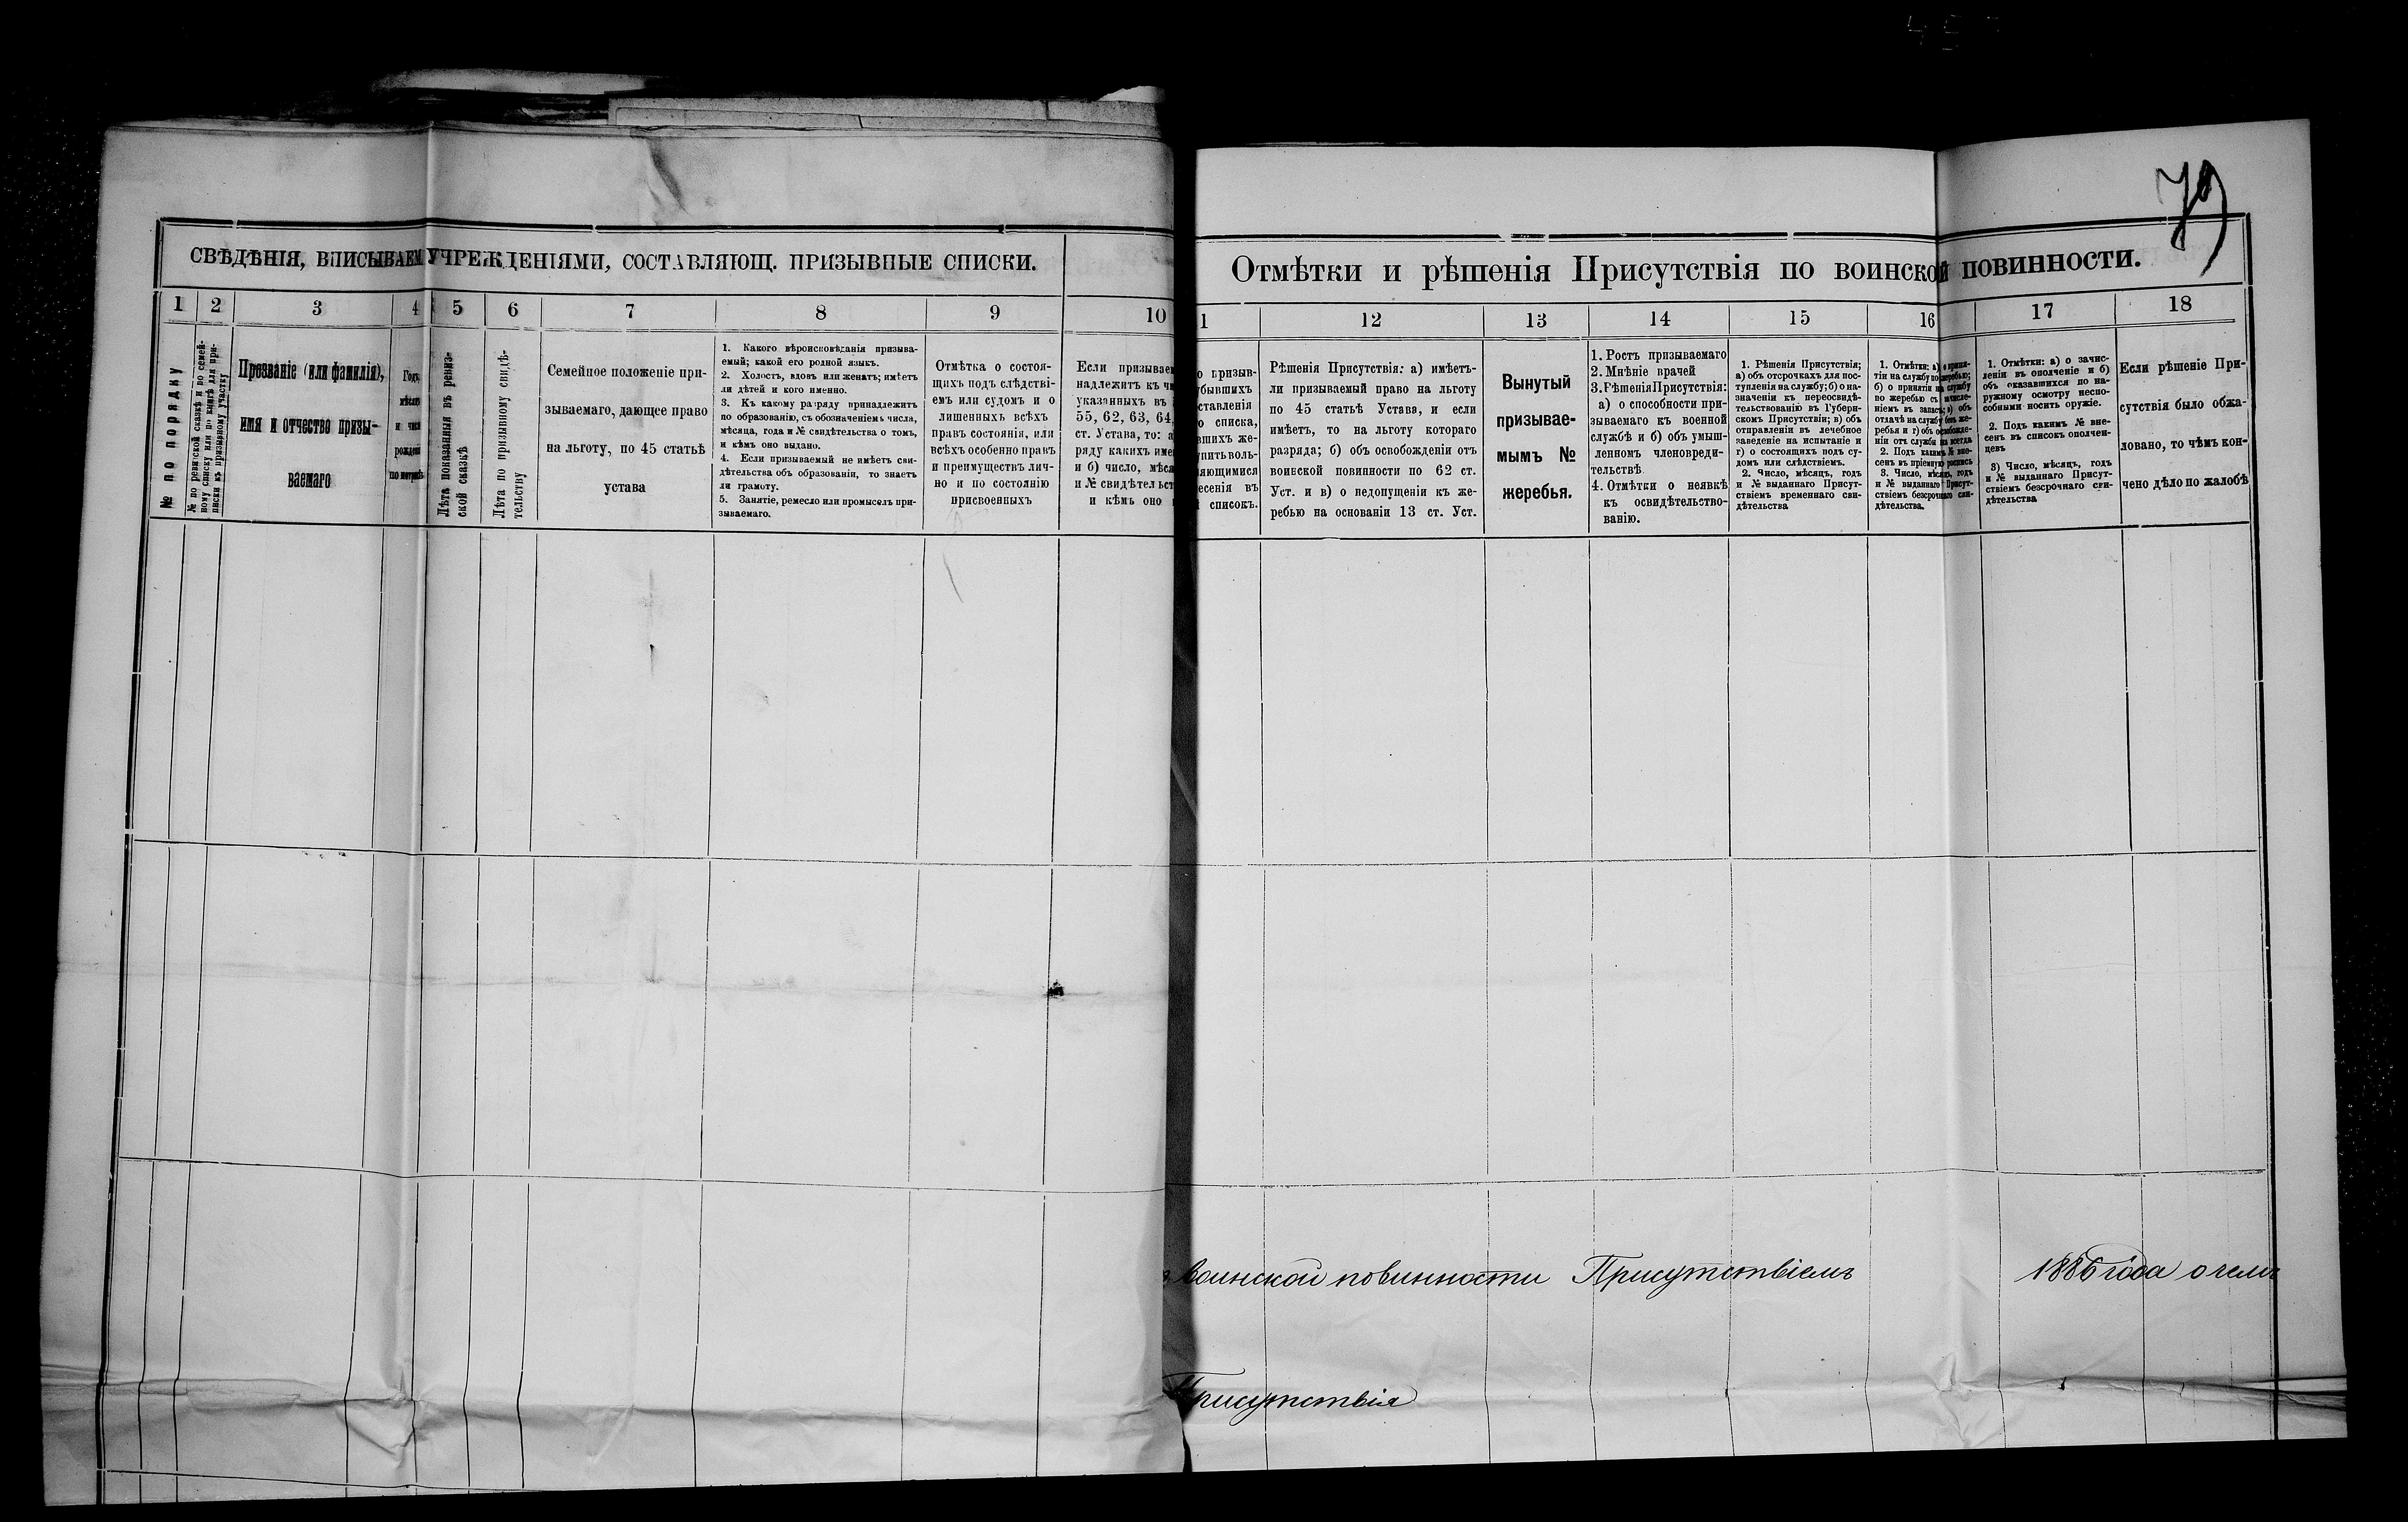 79
СВѢДѢНІЯ, ВПИСЫВАЕМ УЧРЕЖДЕНІЯМИ, СОСТАВЛЯЮЩ. ПРИЗЫВНЫЕ СПИСКИ.
1 2 3 4 5 6 7 8 9 10
№ по порядку
№ по ревизской сказкѣ и по семей-
ному списку или по книгѣ для при-
писки къ призывному участку
Прозваніе (или фамилія),
имя и отчество призы-
ваемаго
Годъ,
мѣсяцъ
и число
рожденія
по метрикѣ
Лѣта показанныя въ ревиз-
ской сказкѣ
Лѣта по призывному свидѣ-
тельству
Семейное положеніе при-
зываемаго, дающее право
на льготу, по 45 статьѣ
устава
1. Какого вѣроисповѣданія призыва-
емый; какой его родной языкъ.
2. Холостъ, вдовъ или женатъ; имѣетъ
ли дѣтей и кого именно.
3. Къ какому разряду принадлежитъ
по образованію, съ обозначеніемъ числа,
мѣсяца, года и № свидѣтельства о томъ,
и кѣмъ оно выдано.
4. Если призываемый не имѣетъ сви-
дѣтельства объ образованіи, то знаетъ
ли грамоту.
5. Занятіе, ремесло или промыселъ при-
зываемаго.
Отмѣтка о состоя-
щихъ подъ слѣдстві-
емъ или судомъ и о
лишенныхъ всѣхъ
правъ состоянія, или
всѣхъ особенно правъ
и преимуществъ лич-
но и по состоянію
присвоенныхъ
Если призывае
надлежитъ къ чи
указанныхъ въ
55, 62, 63, 64,
ст. Устава, то: а
ряду какихъ име
и б) число, мѣся
и № свидѣтельст
и кѣмъ оно
Отмѣтки и рѣшенія Присутствія по воинской повинности.
1 12 13 14 15 16 17 18
о призыв-
бывшихъ
ставленія
о списка,
вшихъ же-
упить воль-
ляющимися
есенія въ
списокъ.
Рѣшенія Присутствія: а) имѣетъ-
ли призываемый право на льготу
по 45 статьѣ Устава, и если
имѣетъ, то на льготу котораго
разряда; б) объ освобожденіи отъ
воинской повинности по 62 ст.
Уст. и в) о недопущеніи къ же-
ребью на основаніи 13 ст. Уст.
Вынутый
призывае-
мымъ №
жеребья.
1. Ростъ призываемаго
2. Мнѣніе врачей
3. Рѣшенія Присутствія:
а) о способности при-
зываемаго къ военной
службѣ и б) объ умыш-
ленномъ членовреди-
тельствѣ
4. Отмѣтки о неявкѣ
къ освидѣтельство-
ванію.
1. Рѣшенія Присутствія;
а) объ отсрочкахъ для пос-
тупленія на службу; б) о на-
значеніи къ переосвидѣ-
тельствованію въ Губерн-
скомъ Присутствіи; в) объ
отправленіи въ лечебное
заведеніе на испытаніе и
г) о состоящихъ подъ су-
домъ или слѣдствіемъ.
2. Число, мѣсяцъ, годъ
и № выданнаго Присут-
ствіемъ временнаго сви-
дѣтельства
1. Отмѣтки: а) о приня-
тіи на службу по жеребью;
б) о принятіи на службу
по жеребью съ зачисле-
ніемъ въ запасъ; в) объ
отдачѣ на службу безъ же-
ребья и г) объ освобожде-
ніи отъ службы на всегда
2. Подъ какимъ № вне-
сенъ въ пріемную роспись
3. Число, мѣсяцъ, годъ
и № выданнаго Присут-
ствіемъ безсрочнаго сви-
дѣтельства.
1. Отмѣтки: а) о зачис-
леніи въ ополченіе и б)
объ оказавшихся по на-
ружному осмотру неспо-
собными носить оружіе.
2. Подъ какимъ № вне-
сенъ въ списокъ ополчен-
цевъ
3) Число, мѣсяцъ, годъ
и № выданнаго Присут-
ствіемъ безсрочнаго сви-
дѣтельства
Если рѣшеніе При-
сутствія было обжа-
ловано, то чѣмъ кон-
чено дѣло по жалобѣ
воинской повинности Присутствіемъ 1886 года о чемъ
Присутствія